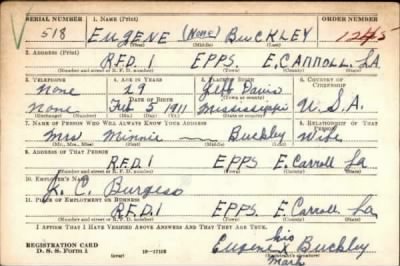 SERIAL NUMBER 1. NAME (Print) ORDER NUMBER
518 EUGENE (None) BUCKLEY 1245
(First) (Middle) (Last)
2. ADDRESS (Print)
R.F.D. 1 EPPS. E. CARROLL. LA
(Number and street or R. F. D. number) (Town) (County) (State)
3. TELEPHONE 4. AGE IN YEARS 5. PLACE OF BIRTH 6. COUNTRY OF CITIZENSHIP
None 29 Jeff Davis
DATE OF BIRTH (Town or county)
None Feb 5 1911 Mississippi U.S.A.
(Exchange) (Number) (Mo.) (Day) (Yr.) (State or country)
7. NAME OF PERSON WHO WILL ALWAYS KNOW YOUR ADDRESS 8. RELATIONSHIP OF THAT PERSON
Mrs Minnie — Buckley Wife
(Mr., Mrs., Miss) (First) (Middle) (Last)
9. ADDRESS OF THAT PERSON
R.F.D. 1 EPPS E. Carroll La
(Number and street or R. F. D. number) (Town) (County) (State)
10. EMPLOYER'S NAME
C. Burgess
11. PLACE OF EMPLOYMENT OR BUSINESS
R.F.D. 1 EPPS. E. Carroll, La.
(Number and street or R. F. D. number) (Town) (County) (State)
I AFFIRM THAT I HAVE VERIFIED ABOVE ANSWERS AND THAT THEY ARE TRUE.
his
REGISTRATION CARD Eugene X Buckley
D. S. S. Form 1 (over) (Registrant's signature)
Mark